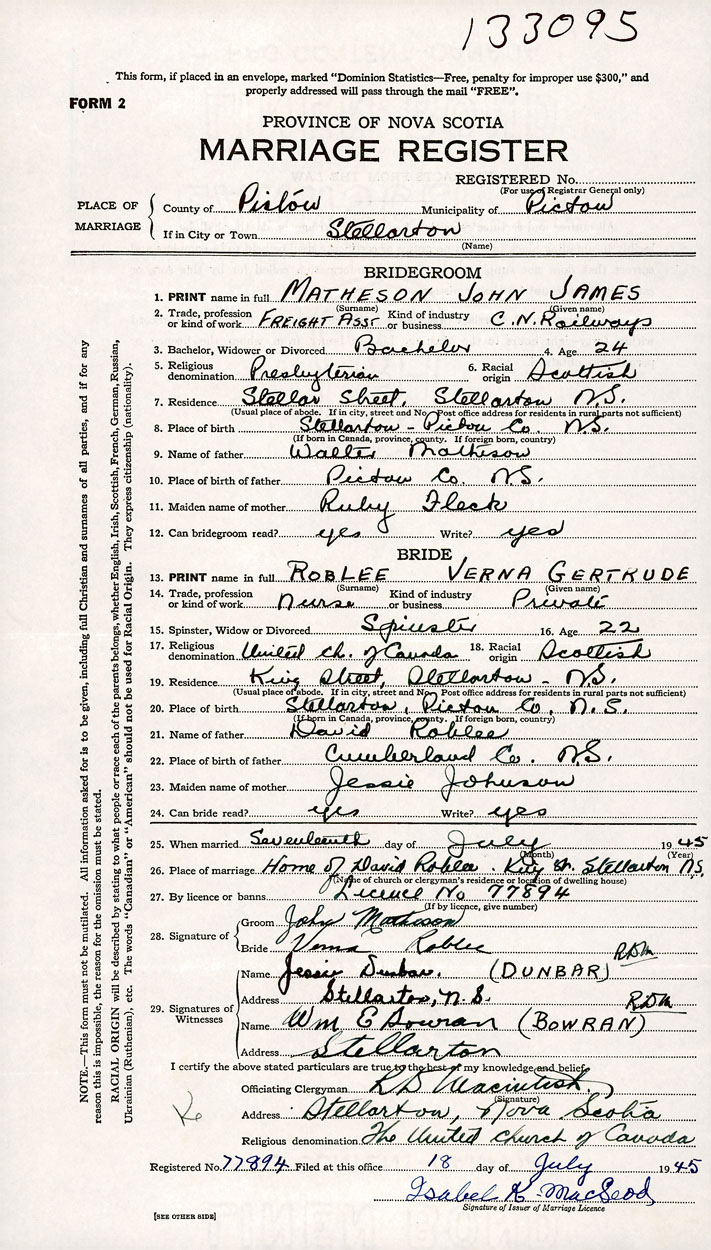 133095
This form, if placed in an envelope, marked "Dominion Statistics—Free, penalty for improper use $300," and
properly addressed will pass through the mail "FREE".
FORM 2
PROVINCE OF NOVA SCOTIA
MARRIAGE REGISTER
REGISTERED No.
(For use of Registrar General only)
PLACE OF MARRIAGE
County of Pictou Municipality of Pictou
If in City or Town Stellarton
(Name)
BRIDEGROOM
1. PRINT name in full MATHESON JOHN JAMES
(Surname) (Given name)
2. Trade, profession or kind of work FREIGHT ASST Kind of industry or business C.N. Railways
3. Bachelor, Widower or Divorced Bachelor 4. Age 24
5. Religious denomination Presbyterian 6. Racial origin Scottish
7. Residence Stellar Street, Stellarton N.S.
(Usual place of abode. If in city, street and No. Post office address for residents in rural parts not sufficient)
8. Place of birth Stellarton - Pictou Co. N.S.
(If born in Canada, province, county. If foreign born, country)
9. Name of father Walter Matheson
10. Place of birth of father Pictou Co. N.S.
11. Maiden name of mother Ruby Fleck
12. Can bridegroom read? yes Write? yes
BRIDE
13. PRINT name in full ROBLEE VERNA GERTRUDE
(Surname) (Given name)
14. Trade, profession or kind of work Nurse Kind of industry or business Private
15. Spinster, Widow or Divorced Spinster 16. Age 22
17. Religious denomination United Ch. of Canada 18. Racial origin Scottish
19. Residence King Street, Stellarton - N.S.
(Usual place of abode. If in city, street and No. Post office address for residents in rural parts not sufficient)
20. Place of birth Stellarton, Pictou Co. N.S.
(If born in Canada, province, county. If foreign born, country)
21. Name of father David Roblee
22. Place of birth of father Cumberland Co. N.S.
23. Maiden name of mother Jessie Johnson
24. Can bride read? yes Write? yes
25. When married Seventeenth day of July 1945
(Month) (Year)
26. Place of marriage Home of David Roblee. King St. Stellarton N.S.
(Name of church or clergyman's residence or location of dwelling house)
27. By licence or banns Licence No 77894
(If by licence, give number)
28. Signature of
Groom John Matheson
Bride Verna Roblee
RDM
29. Signatures of Witnesses
Name Jessie Dunbar. (DUNBAR)
Address Stellarton, N.S. RDM
Name Wm E Bowran (BOWRAN)
Address Stellarton
I certify the above stated particulars are true to the best of my knowledge and belief.
Officiating Clergyman RD Macintosh
(Signature)
Address Stellarton, Nova Scotia
Religious denomination The United Church of Canada
Registered No. 77894 Filed at this office 18 day of July 1945
Isabel K. MacLeod
Signature of Issuer of Marriage Licence
[SEE OTHER SIDE]
NOTE.—This form must not be mutilated. All information asked for is to be given, including full Christian and surnames of all parties, and if for any
reason this is impossible, the reason for the omission must be stated.
RACIAL ORIGIN will be described by stating to what people or race each of the parents belongs, whether English, Irish, Scottish, French, German, Russian,
Ukrainian (Ruthenian), etc. The words "Canadian" or "American" should not be used for Racial Origin. They express citizenship (nationality).